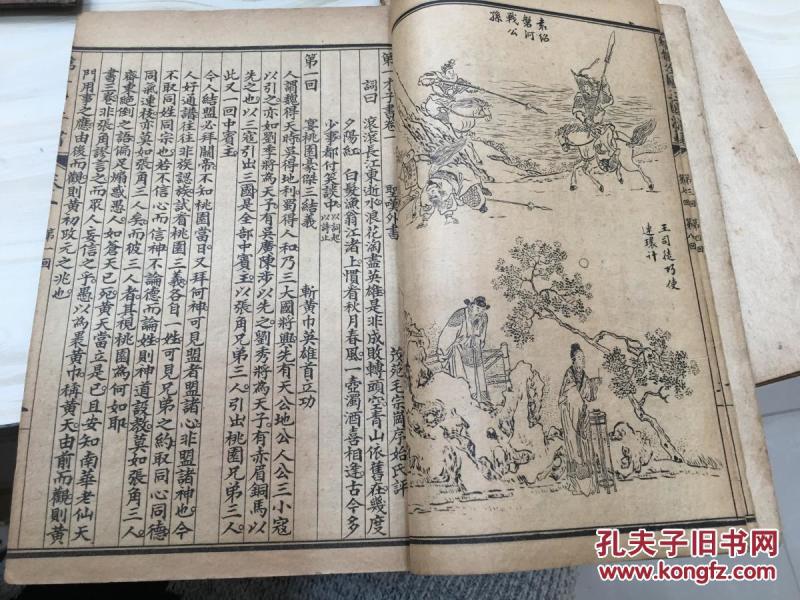 袁紹
磐河
戰公
孫
王司徒巧使
連環計
第一才子書卷一
聖嘆外書
茂苑毛宗岡序始氏評
詞曰 滾滾長江東逝水浪花淘盡英雄是非成敗轉頭空青山依舊在幾度
夕陽紅 白髮漁翁江渚上慣看秋月春風一壺濁酒喜相逢古今多
少事都付笑談中以詞起以詞止
第一回
宴桃園豪傑三結義 斬黃巾英雄首立功
人謂魏得天時吳得地利蜀得人和乃三大國將興先有天公地公人公三小寇
以引之亦如劉季將為天子有吳廣陳涉以先之劉秀將為天子有赤眉銅馬以
先之也以三寇引出三國是全部中賓主以張角兄弟三人引出桃園兄弟三人
此又一回中賓主
今人結盟必拜關帝不知桃園當日又拜何神可見盟者盟諸心非盟諸神也今
人好通譜往往非族認族試看桃園三義各自一姓可見兄弟之約取同心同德
不取同姓同宗也若不信心而信神不論德而論姓則神道設教莫如張角三人
同氣連枝亦莫如張角三人矣而彼三人者其視桃園為何如耶
齊東絕倒之語偏足煽惑愚人如蒼天已死黃天當立是已且安知南華老仙天
書三卷非張角謬言之而眾人妄信之乎愚以為裹黃巾稱黃天由前而觀則黃
門用事之應由後而觀則黃初改元之兆也
孔夫子旧书网
www.kongfz.com